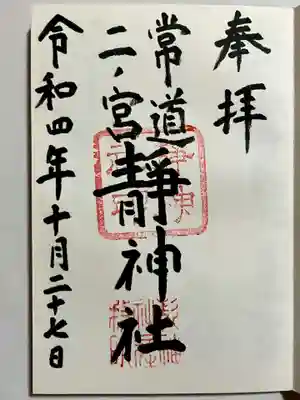 奉拝
常道
二ノ宮靜神社
令和四年十月二十七日